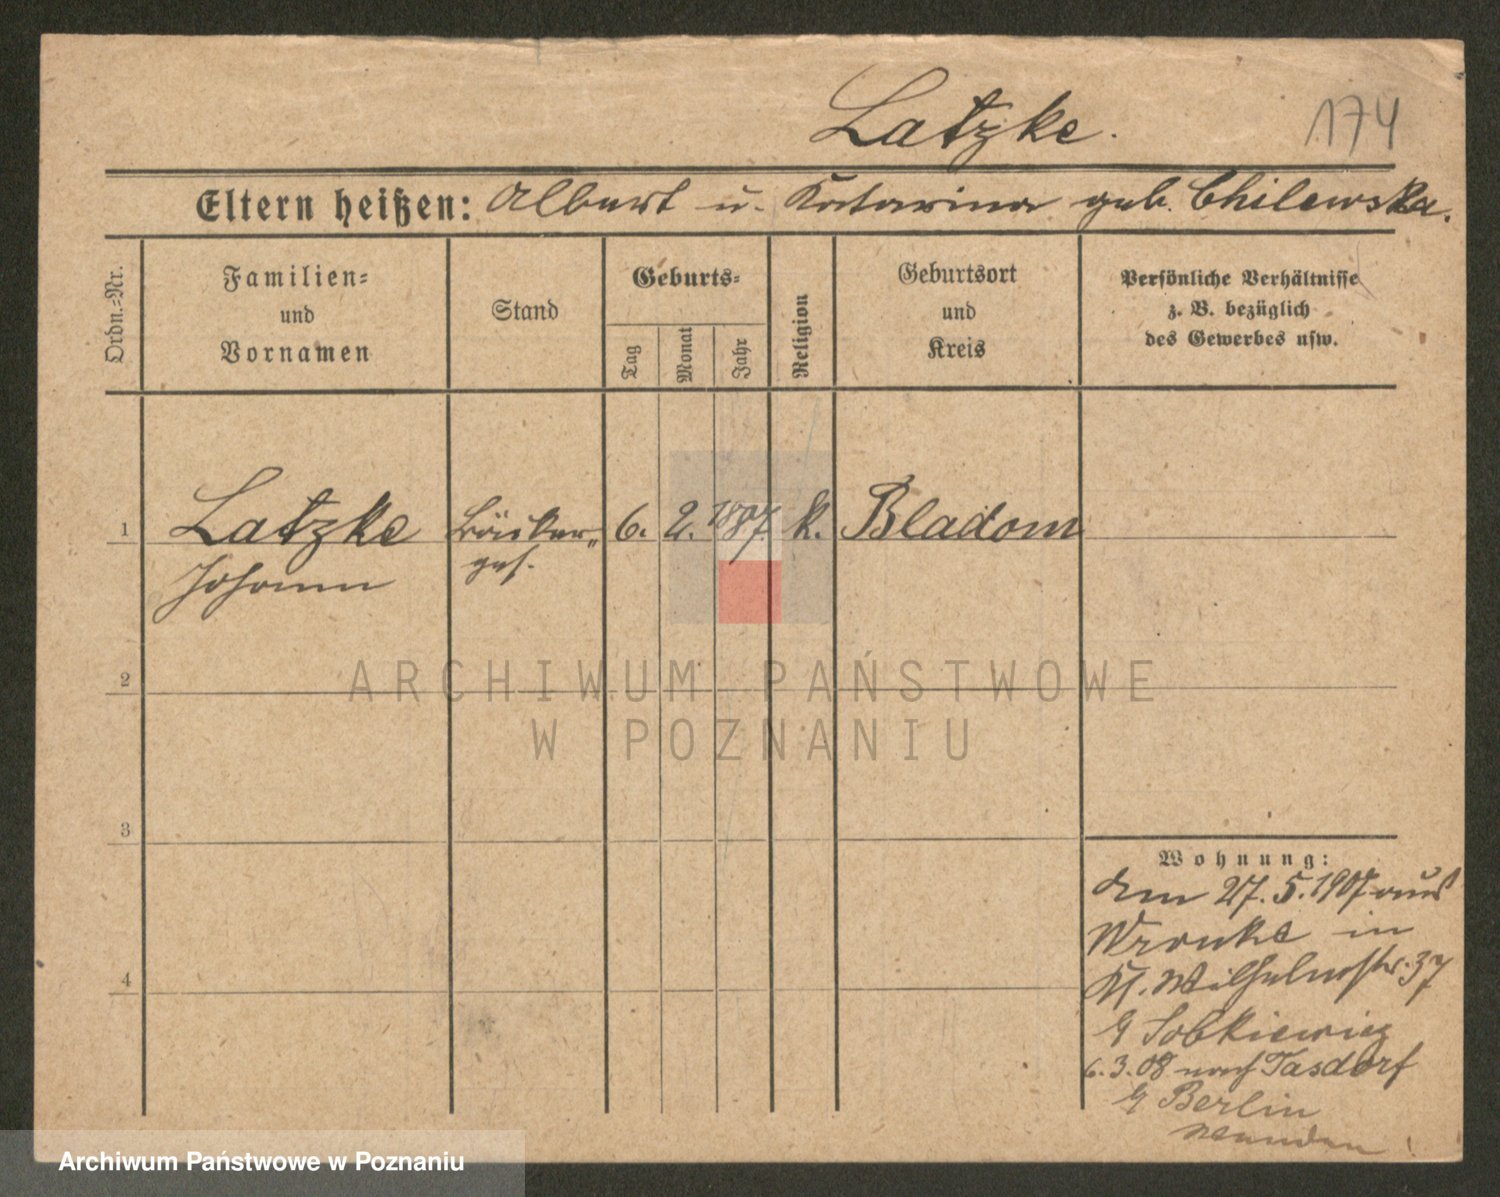 Latzke.
174
Eltern heißen: Albert u. Katarina geb. Chilewska.
Ordn.=Nr.
Familien=
und
Vornamen
Stand
Geburts=
Tag
Monat
Jahr
Religion
Geburtsort
und
Kreis
Persönliche Verhältnisse
z. B. bezüglich
des Gewerbes usw.
1
Latzke
Johann
Bäcker„
ges.
6.
2.
1887.
k.
Bladom
2
ARCHIWUM PAŃSTWOWE
W POZNANIU
3
4
Wohnung:
den 27.5.1907 aus
Wronke in
Kl. Wilhelmstr. 37
b/ Sobkiewicz
6.3.08 nach Tasdorf
b/ Berlin
Archiwum Państwowe w Poznaniu